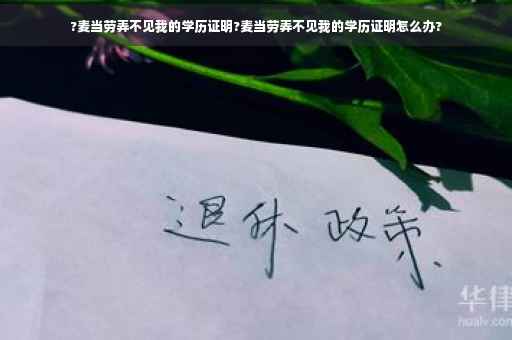 ?麦当劳弄不见我的学历证明?麦当劳弄不见我的学历证明怎么办?
退休政策
华律
hualv.com